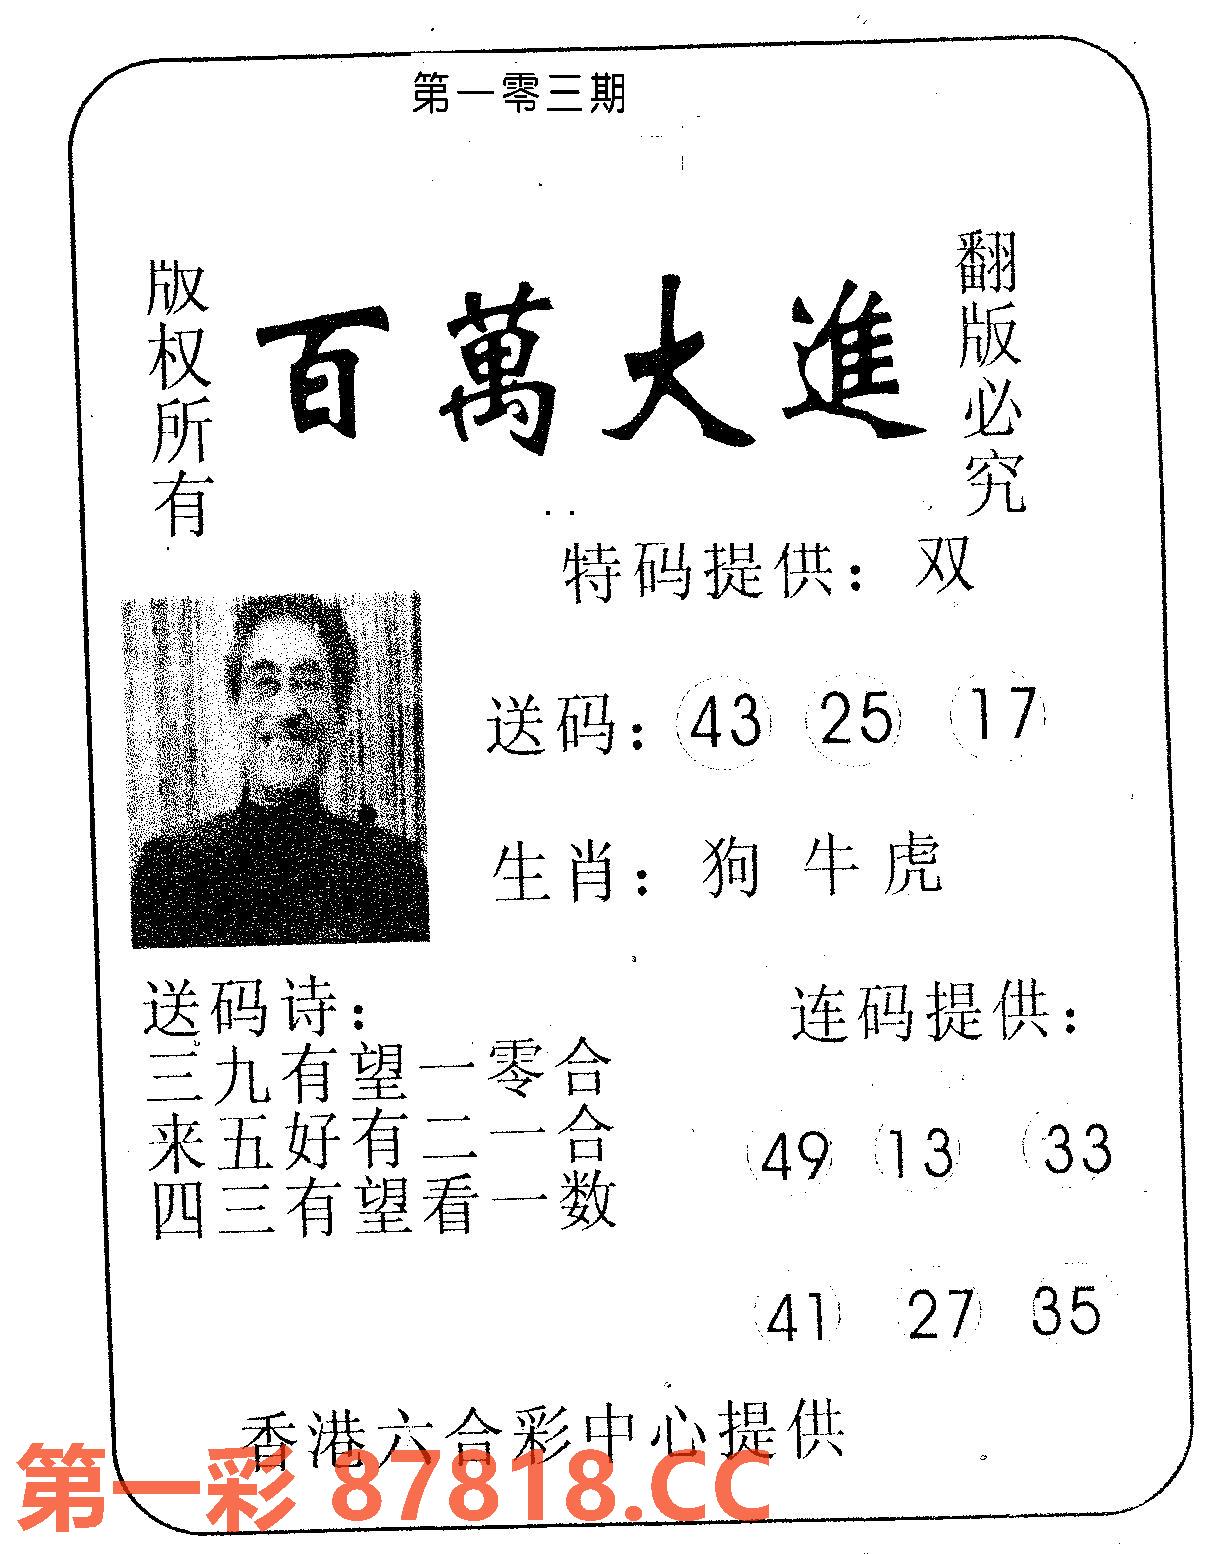 第一零三期
版权所有
百萬大進
翻版必究
特码提供：双
送码：43 25 17
生肖：狗 牛 虎
送码诗：
三九有望一零合
来五好有二一合
四三有望看一数
连码提供：
49 13 33
41 27 35
香港六合彩中心提供
第一彩 87818.CC